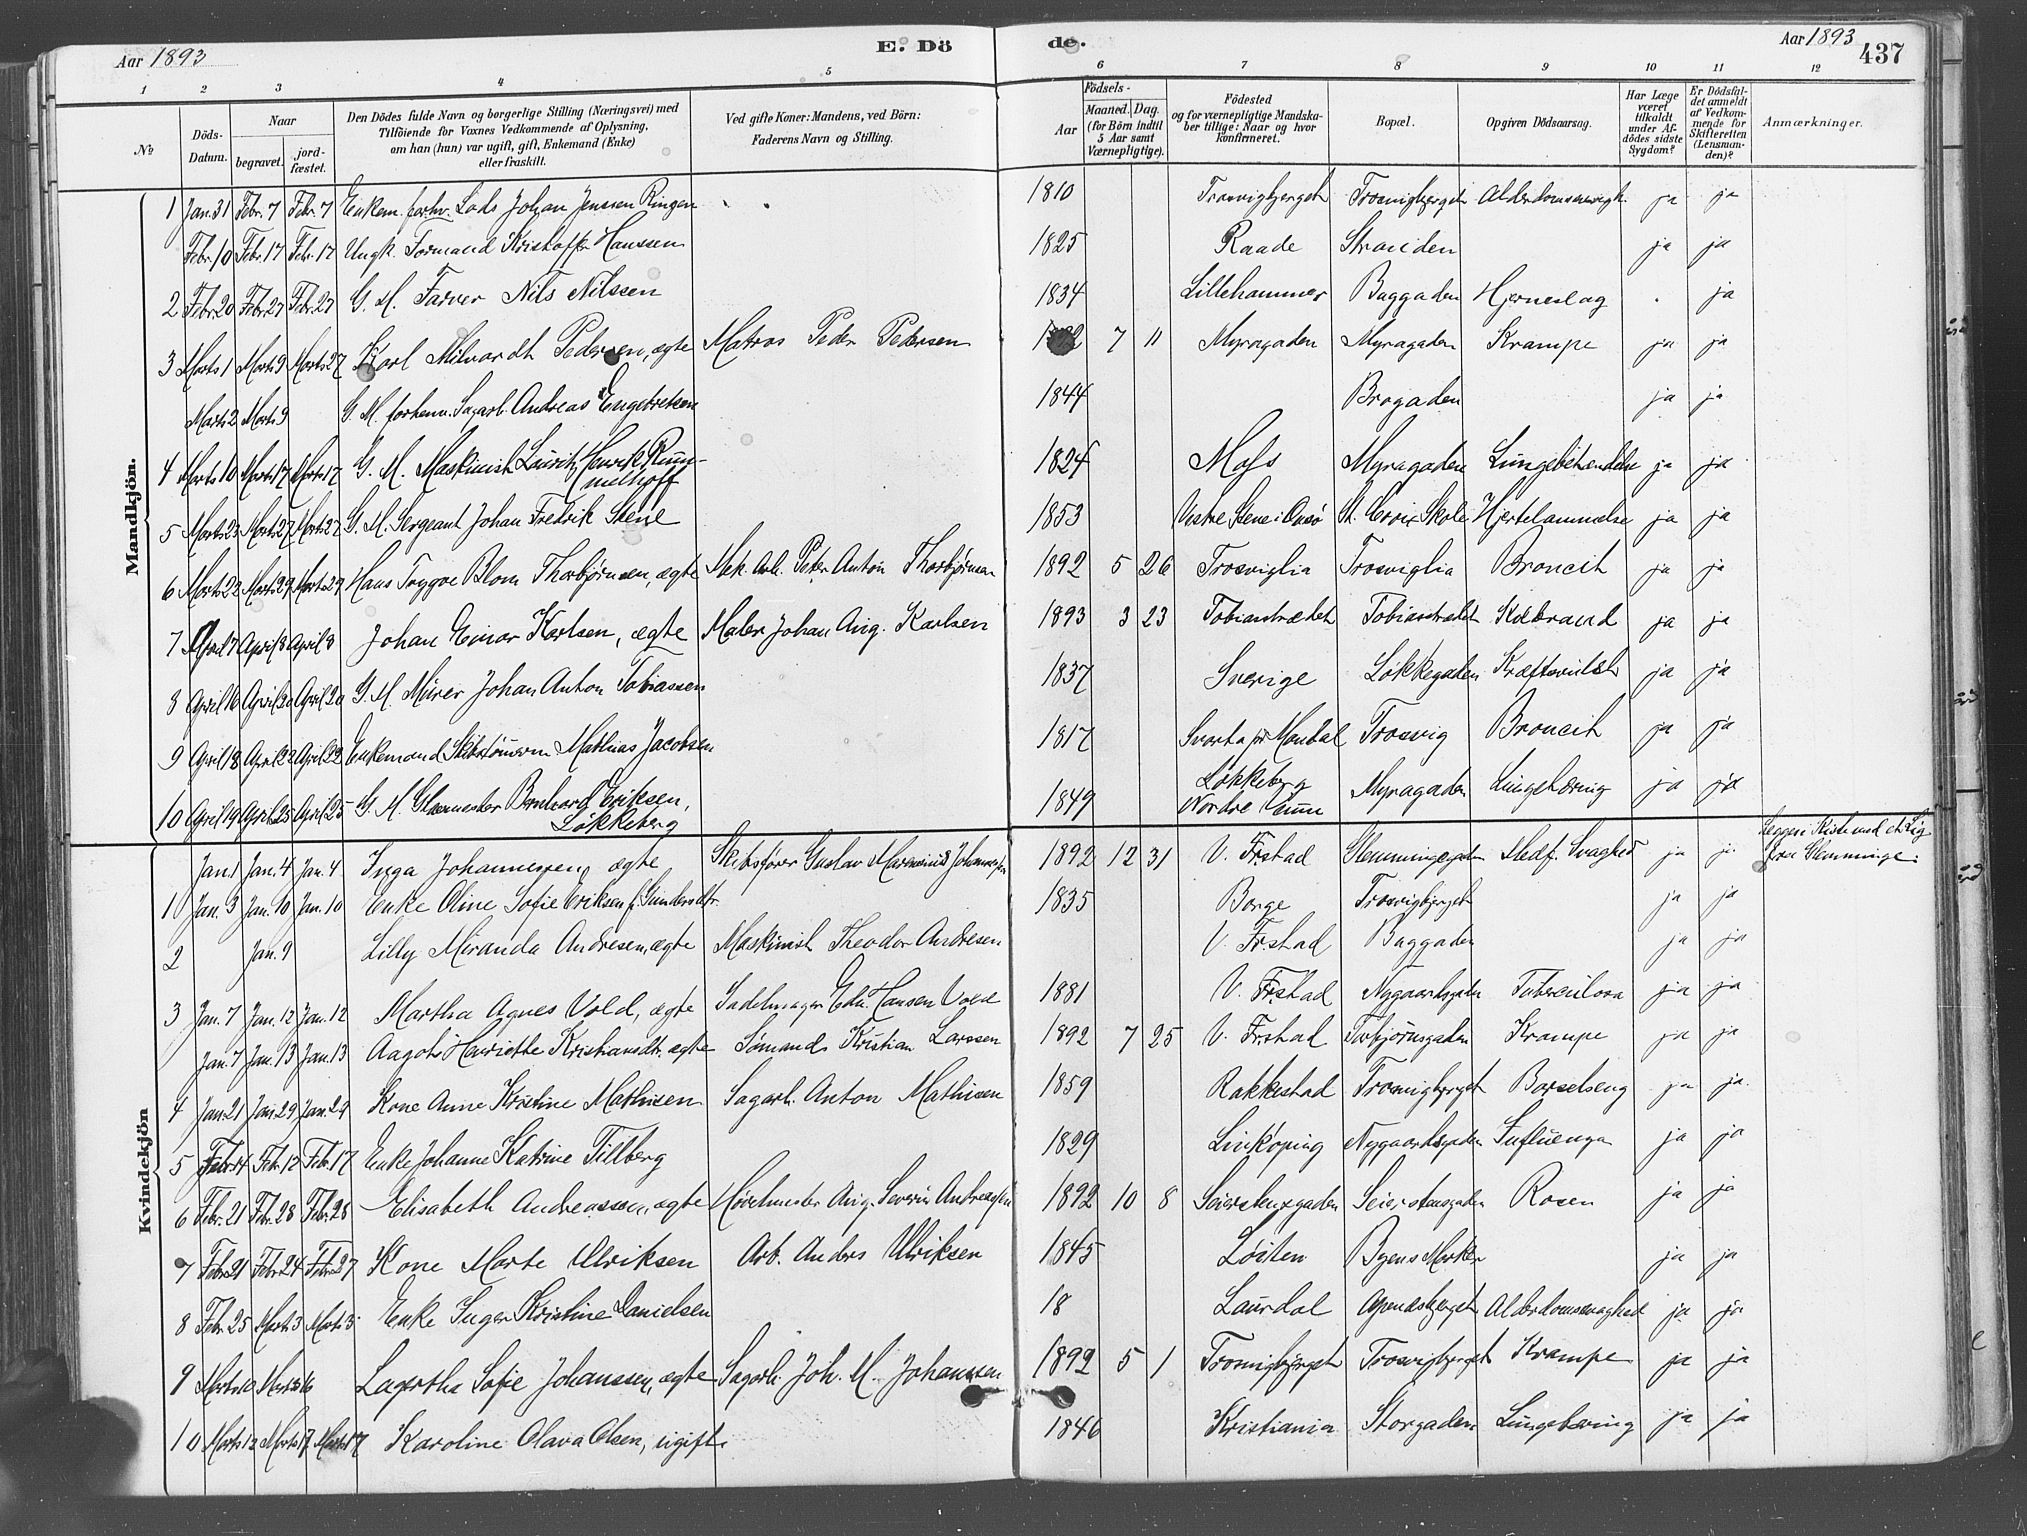 Aar 1893
E. Dö
de.
Aar 1893
437
1 2 3 4 5 6 7 8 9 10 11 12
№
Döds-Datum.
Naar
begravet.
jord-fæstet.
Den Dödes fulde Navn og borgerlige Stilling (Næringsvei) med
Tilföiende for Voxnes Vedkommende af Oplysning,
om han (hun) var ugift, gift, Enkemand (Enke)
eller fraskilt.
Ved gifte Koner: Mandens, ved Börn:
Faderens Navn og Stilling.
Födsels-
Aar
Maaned. Dag.
(for Börn indtil
5 Aar samt
Værnepligtige).
Födested
og for værnepligtige Mandska-
ber tillige: Naar og hvor
konfirmeret.
Bopæl.
Opgiven Dödsaarsag.
Har Læge
været
tilkaldt
under Af-
dödes sidste
Sygdom?
Er Dödsfal-
det anmeldt
af Vedkom-
mende for
Skifteretten
(Lensman-
den)?
Anmærkninger.
Mandkjön.
1 Jan. 31 Febr. 7 Febr. 7 Enkem. forhv. Lods Johan Jenssen Ringen 1810 Trosvigbjerget Trosvigbjerget Alderdomssvagh. ja ja
Febr. 10 Febr. 17 Febr. 17 Ungk. Formand Kristoffer Hanssen 1825 Raade Stranden ja ja
2 Febr. 20 Febr. 27 Febr. 27 G. M. Farver Nils Nilssen 1834 Lillehammer Baggaden Hjerneslag ja
3 Marts 1 Marts 9 Marts 27 Karl Milvardt Pedersen, ægte Matros Peder Pedersen 7 11 Myragaden Myragaden Krampe ja ja
Marts 2 Marts 9 G. M. forhenv. Sagarb. Andreas Engebretsen 1844 Brogaden ja ja
4 Marts 10 Marts 17 Marts 17 G. M. Maskinist Lauritz Henrik Rum-
melhoff 1824 Moss Myragaden Lungebetændelse ja ja
5 Marts 23 Marts 27 Marts 27 G. M. Sergeant Johan Fredrik Stene 1853 Vestre Stene i Onsø St. Croix Skole Hjertelammelse ja ja
6 Marts 22 Marts 29 Marts 29 Hans Trygve Blom Thorbjørnsen, ægte Mek. Arb. Peter Anton Thorbjørnsen 1892 5 26 Trosviglia Trosviglia Broncit ja ja
7 April 7 April 8 April 8 Johan Einar Karlsen, ægte Maler Johan Aug. Karlsen 1893 3 23 Tobiastrædet Tobiastrædet Koldbrand ja ja
8 April 16 April 20 April 20 G. M. Murer Johan Anton Tobiassen 1837 Sverige Løkkegaden Kræftsvulst ja ja
9 April 18 April 22 April 22 Enkemand Skibstømmerm. Mathias Jacobsen 1817 Svarta pr Mandal Trosvig Broncit ja ja
10 April 19 April 25 April 25 G. M. Glasmester Bernhard Eriksen,
Løkkeberg 1849 Løkkeberg
Nordre Myragaden Lungetæring ja ja
Kvindekjön
Jan. 1 Jan. 4 Jan. 4 Inga Johannessen, ægte Skibsfører Gustav Marinius Johannessen 1892 12 31 V. Frstad Glemmingegaden Medf. Svaghed ja ja Lægges i Kiste med et Lig
fra Glemminge.
1 Jan. 3 Jan. 10 Jan. 10 Enke Oline Sofie Eriksen f. Gundersdtr. 1835 Borge Trosvigbjerget ja ja
2 Jan. 9 Lilly Miranda Andresen, ægte Maskinist Theodor Andresen V. Frstad Baggaden ja ja
3 Jan. 7 Jan. 12 Jan. 12 Martha Agnes Vold, ægte Sadelmager Edv. Hansen Vold 1881 V. Frstad Nygaardsgaden Tuberculosa ja ja
Jan. 7 Jan. 13 Jan. 13 Aagot Henriette Kristiansdtr. ægte Sømand Kristian Larssen 1892 7 25 V. Frstad Torbjørnsgaden Krampe ja ja
4 Jan. 21 Jan. 29 Jan. 29 Kone Anne Kristine Mathisen Sagarb. Anton Mathisen 1859 Rakkestad Trosvigbjerget Barselseng ja ja
5 Febr. 4 Febr. 12 Febr. 17 Enke Johanne Katrine Tillberg 1829 Linkøping Nygaardsgaden Influenza ja ja
6 Febr. 21 Febr. 28 Febr. 28 Elisabeth Andreassen, ægte Høvelmester Aug. Severin Andreassen 1892 10 8 Seierstensgaden Seierstensgaden Rosen ja ja
7 Febr. 21 Febr. 24 Febr. 27 Kone Marte Ulriksen Arb. Anders Ulriksen 1845 Løiten Byens Marker ja ja
8 Febr. 25 Marts 3 Marts 3 Enke Inger Kristine Danielsen 18 Laurdal Apenæsbjerget Alderdomssvaghed ja ja
9 Marts 10 Marts 16 Lagertha Sofie Johanssen, ægte Sagarb. Joh. M. Johanssen 1892 5 1 Trosvigbjerget Trosvigbjerget Krampe ja ja
10 Marts 12 Marts 17 Marts 17 Karoline Olava Olsen, ugift 1846 Kristiania Storgaden Lungetæring ja ja